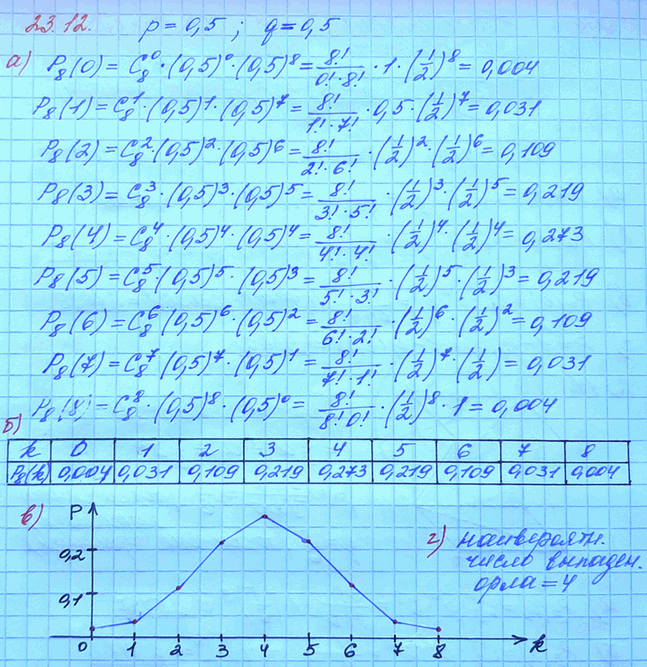 23.12. p = 0,5 ; q = 0,5
а) P₈(0) = C₈⁰·(0,5)⁰·(0,5)⁸ = 8!/(0!·8!) · 1 · (1/2)⁸ = 0,004
P₈(1) = C₈¹·(0,5)¹·(0,5)⁷ = 8!/(1!·7!) · 0,5 · (1/2)⁷ = 0,031
P₈(2) = C₈²(0,5)²·(0,5)⁶ = 8!/(2!·6!) · (1/2)²·(1/2)⁶ = 0,109
P₈(3) = C₈³·(0,5)³·(0,5)⁵ = 8!/(3!·5!) · (1/2)³·(1/2)⁵ = 0,219
P₈(4) = C₈⁴·(0,5)⁴·(0,5)⁴ = 8!/(4!·4!) · (1/2)⁴·(1/2)⁴ = 0,273
P₈(5) = C₈⁵(0,5)⁵·(0,5)³ = 8!/(5!·3!) · (1/2)⁵·(1/2)³ = 0,219
P₈(6) = C₈⁶(0,5)⁶·(0,5)² = 8!/(6!·2!) · (1/2)⁶·(1/2)² = 0,109
P₈(7) = C₈⁷(0,5)⁷·(0,5)¹ = 8!/(7!·1!) · (1/2)⁷·(1/2) = 0,031
P₈(8) = C₈⁸·(0,5)⁸·(0,5)⁰ = 8!/(8!·0!) · (1/2)⁸ · 1 = 0,004
б)
k 0 1 2 3 4 5 6 7 8
P₈(k) 0,004 0,031 0,109 0,219 0,273 0,219 0,109 0,031 0,004
в) P
0,2
0,1
0 1 2 3 4 5 6 7 8 k
г) наивероятн.
число выпаден.
орла = 4